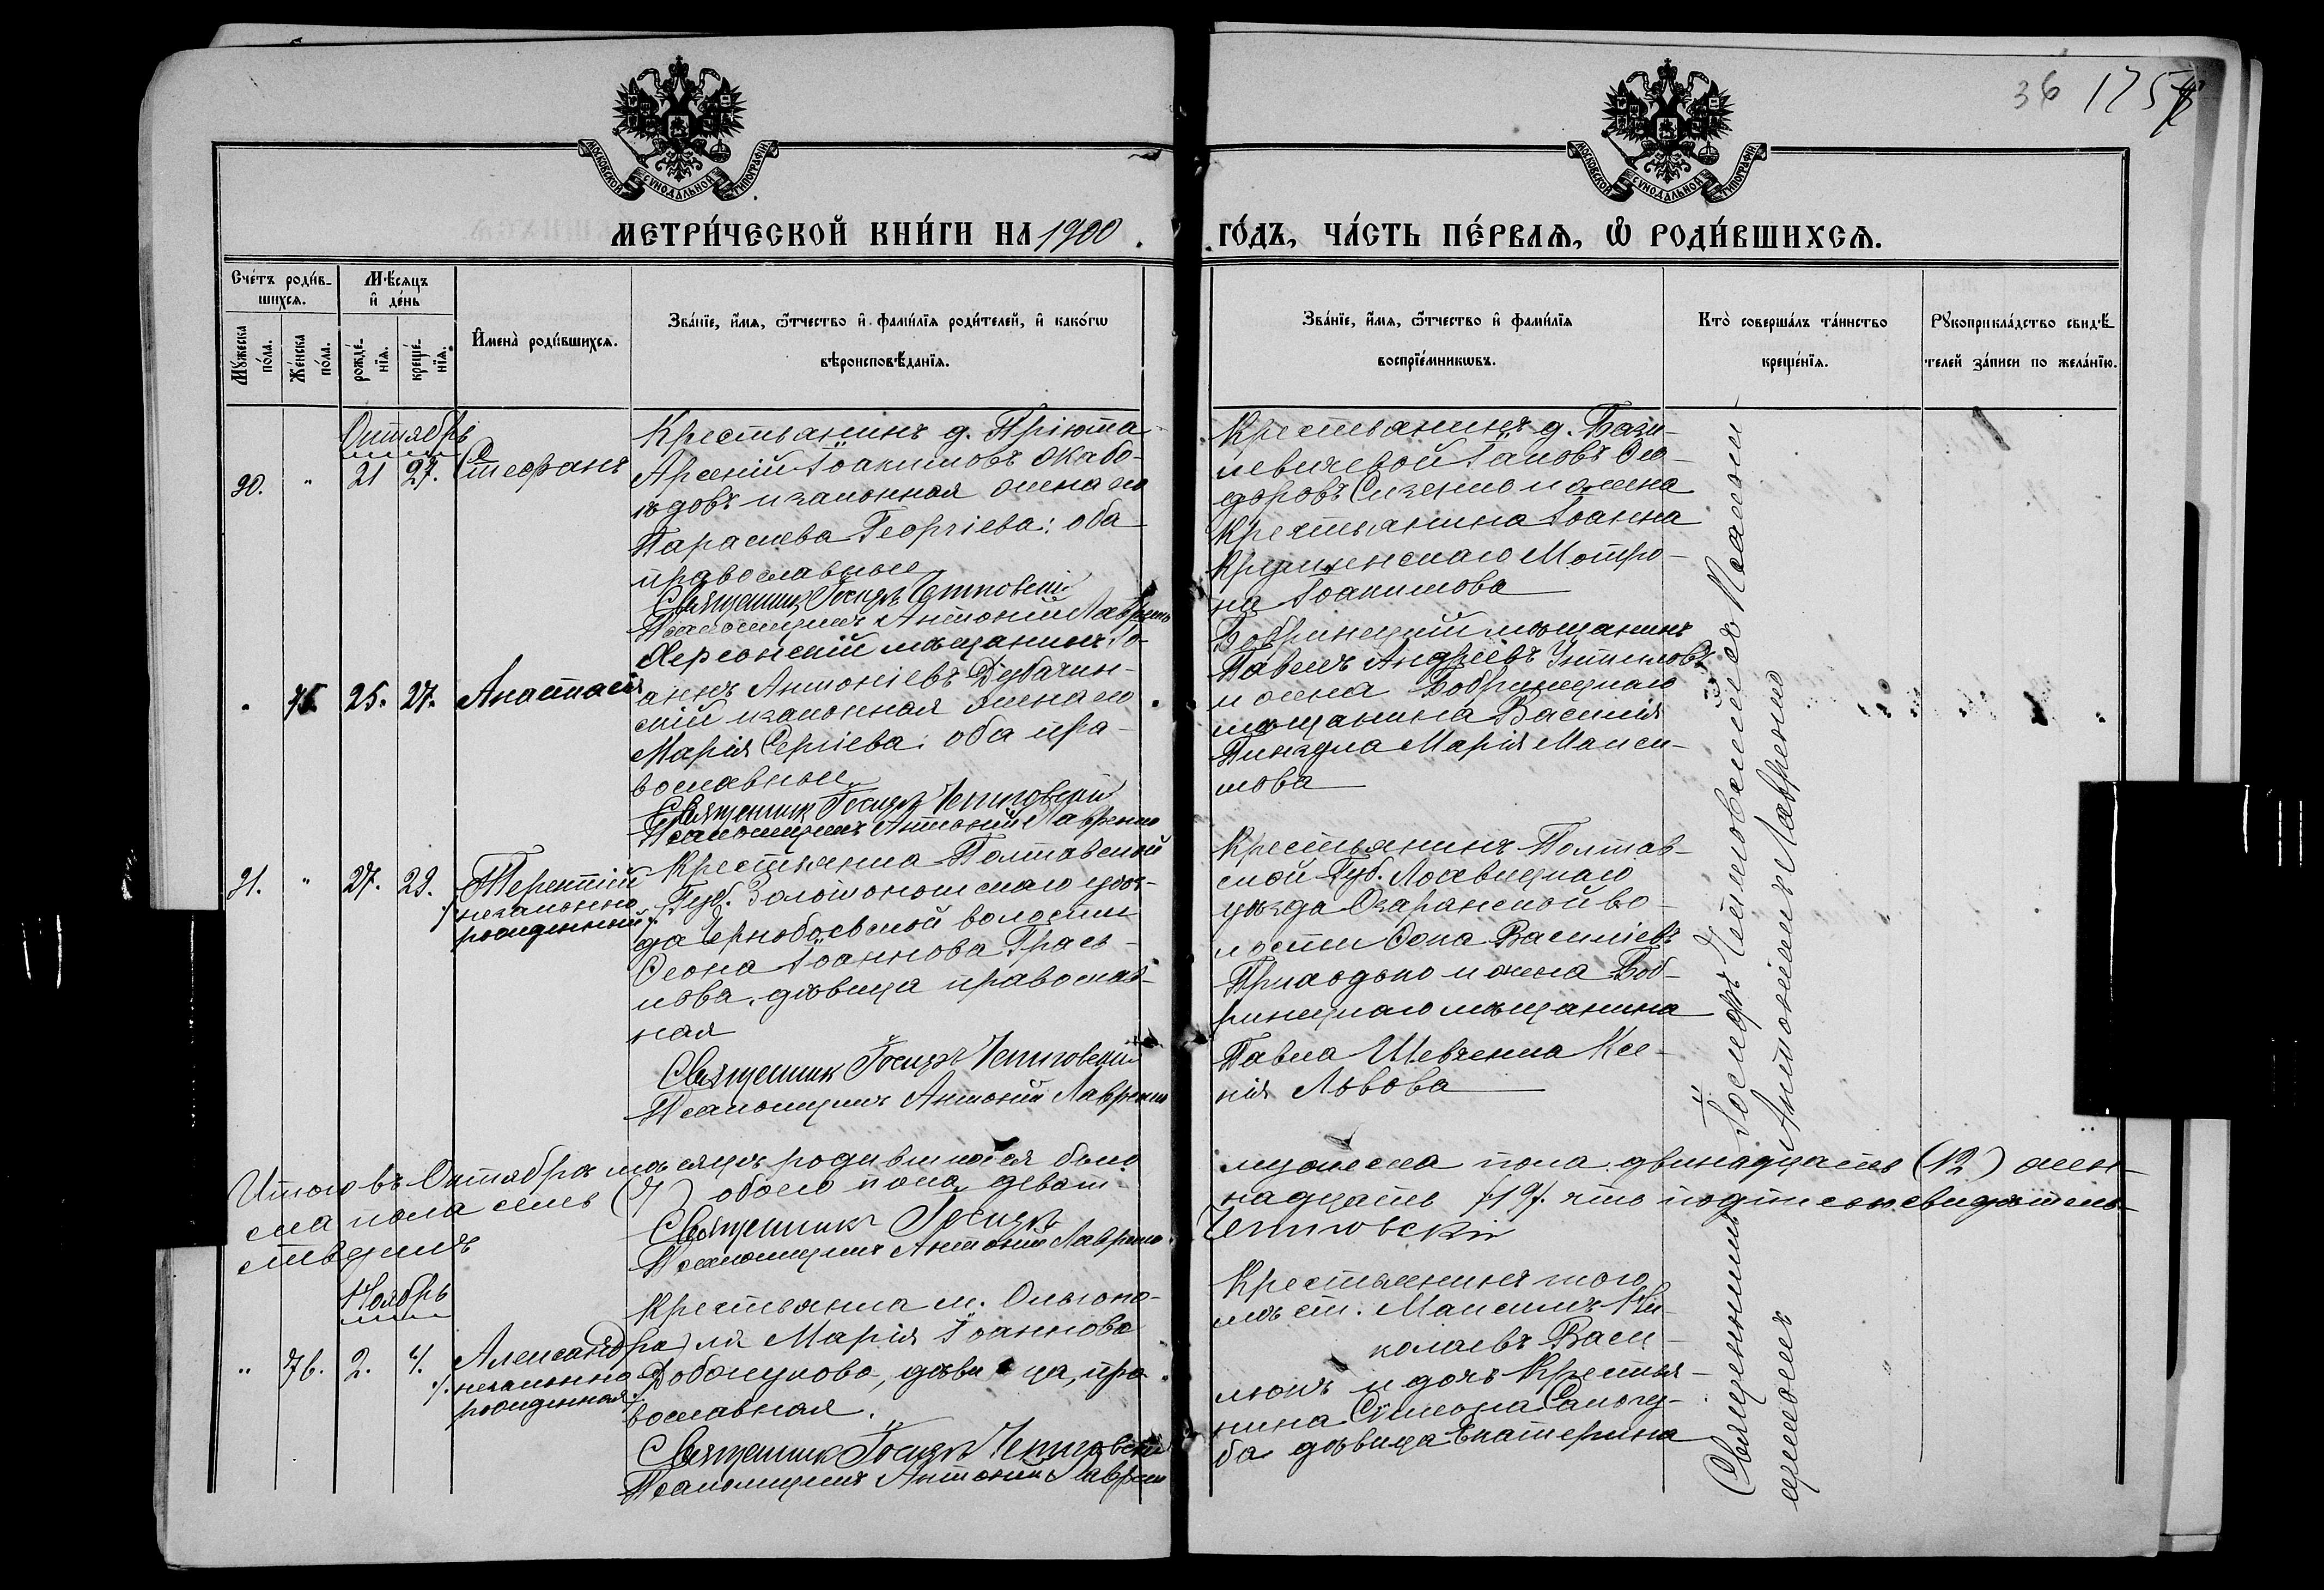 36 175
МОСКОВСКОЙ СѴНОДАЛЬНОЙ ТИПОГРАФІИ
МОСКОВСКОЙ СѴНОДАЛЬНОЙ ТИПОГРАФІИ
МЕТРИ́ЧЕСКОЙ КНИ́ГИ НА 1900
ГО́ДЪ, ЧА́СТЬ ПЕ́РВАѦ, Ѽ РОДИ́ВШИХСѦ.
Сче́тъ роди́в-
шихсѧ.
Мꙋ́жеска по́ла.
Же́нска по́ла.
Мѣ́сѧцъ
и҆ де́нь
рожде́-
нїѧ.
креще́-
нїѧ.
И҆мена̀ роди́вшихсѧ.
Зва́нїе, и҆́мѧ, ѻ҆́тчество и҆ фами́лїѧ роди́телей, и҆ како́гѡ
вѣроисповѣ́данїѧ.
Зва́нїе, и҆́мѧ, ѻ҆́тчество и҆ фами́лїѧ
воспрїе́мникѡвъ.
Кто̀ соверша́лъ та́инство
креще́нїѧ.
Рꙋкоприкла́дство свидѣ́-
телей за́писи по жела́нїю.
Октябрь
90. " 21 27. Стефанъ
Крестьянинъ д. Пріюта
Арсеній Іоакимовъ
и законная жена его
Параскева Георгіева: оба
православные
Священникъ Іосифъ
Псаломщикъ Антоній Лавренко
Крестьянинъ д. Бази-
левичевой Ѳео-
доровъ и жена
крестьянина Іоанна
Мотро-
на Іоакимова
" 75. 25. 27. Анастасія
Херсонскій мѣщанинъ Іо-
аннъ Антоніевъ Дубачин-
скій и законная жена его
Марія Сергіева: оба пра-
вославные
Священникъ Іосифъ
Псаломщикъ Антоній Лавренко
Бобринецкій мѣщанинъ
Павелъ Андреевъ
и жена Бобринецкаго
мѣщанина Василія
Марія Макси-
мова
91. " 27. 29. Терентій
незаконно
рожденный
Крестьянка Полтавской
Губ. Золотоношскаго уѣз-
да Чернобаевской волости
Ѳеона Іоаннова Гась-
кова, дѣвица православ-
ная
Священникъ Іосифъ
Псаломщикъ Антоній Лавренко
Крестьянинъ Полтав-
ской Губ. Лохвицкаго
уѣзда во-
лости Ѳома Василіевъ
Приходько и жена Боб-
ринецкаго мѣщанина
Павла Шевченка Ксе-
нія Львова
Итого въ Октябрѣ мѣсяцѣ родившихся было
мужеска пола двѣнадцать (12) жен-
ска пола семь (7) обоего пола девят-
надцать /19/. что подписом свидѣтель-
ствуемъ
Священникъ Іосифъ
Псаломщикъ Антоній Лавренко
Ноябрь
" 76. 2. 4. Александра
незаконно
рожденная
Крестьянка м. Ольгопо-
ля Марія Іоаннова
дѣвица, пра-
вославная.
Священникъ Іосифъ
Псаломщикъ Антоній Лавренко
Крестьянинъ того
мѣст. Максимъ Ни-
колаевъ Васи-
люкъ и дочь крестья-
нина Симеона
дѣвица Екатерина
Священникъ Іосифъ съ Псалом-
щикомъ Антоніемъ Лавренко